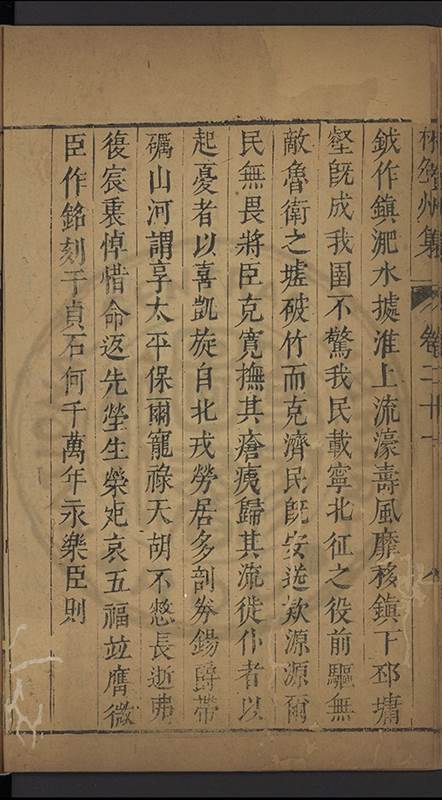 鉞作鎮淝水據淮上流濠壽風靡移鎮下邳墉
壑旣成我圉不驚我民載寧北征之役前驅無
敵魯衛之墟破竹而克濟民旣安送欵源源爾
民無畏將臣克寬撫其瘡痍歸其流徙仆者以
起憂者以喜凱旋自北戎勞居多剖券錫爵帶
礪山河謂享太平保爾寵祿天胡不憗長逝弗
復宸衷悼惜命返先塋生榮死哀五福竝膺微
臣作銘刻于貞石何千萬年永樂臣則
州集
卷二十